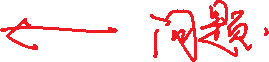 ← 问题.